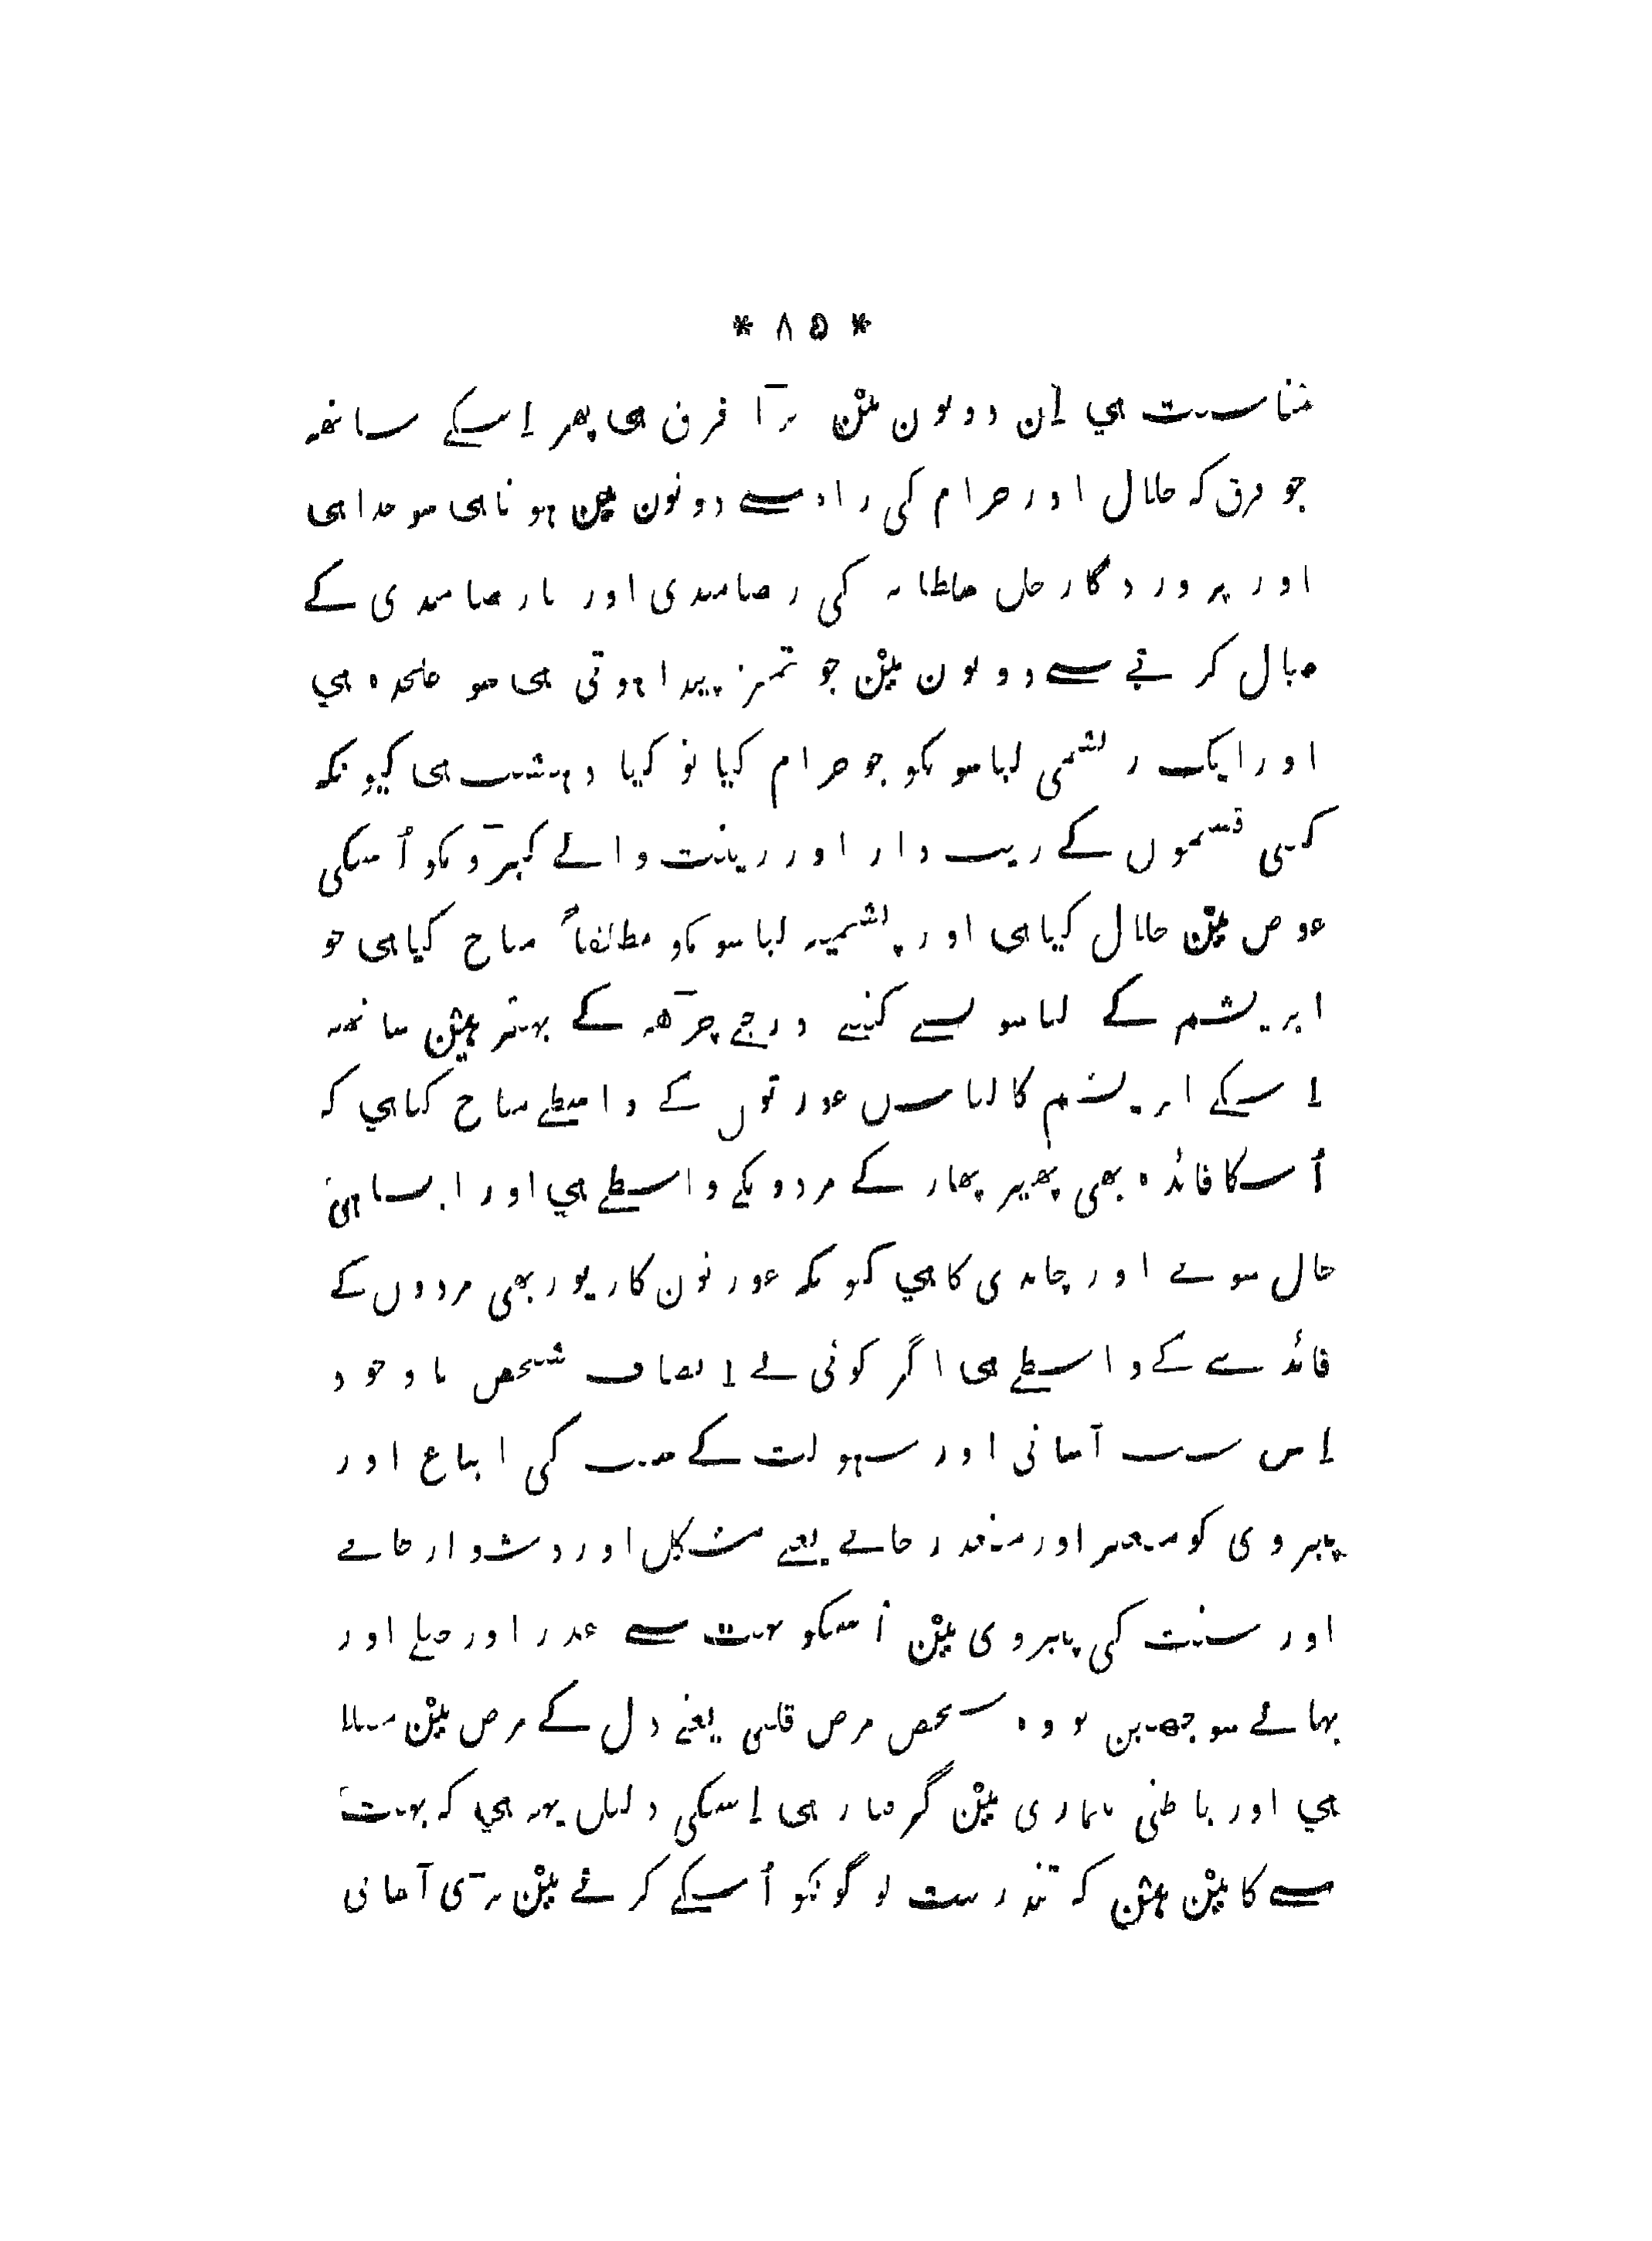 * ۸۵ *
مناسبت هي اِن دونون مین بڑا فرق هی پهر اِسکے ساتهه
جو فرق که حلال اور حرام کی راه سے دونون مین هوتا هی سو جدا هی
اور پروردگار جل سلطانه کی رضامندی اور نارضامندی کے
خیال کرنے سے دونون مین جو تمیز پیدا هوتی هی سو علحده هي
اور ایک ریشمی لباس کو جو حرام کیا تو کیا دهشت هی کیونکه
کئی قسموں کے زیب دار اور زینت والے کپڑونکو اُسکی
عوض مین حلال کیا هی اور پشمینه لباس کو مطلقاً مباح کیا هی جو
ابریشم کے لباس سے کتنے درجے چڑهه کے بهتر هین ساتهه
اِسکے ابریشم کا لباس عورتوں کے واسطے مباح کیا هي که
اُسکا فائده بهی پهیر پهار کے مردونکے واسطے هي اور ایسا هی
حال سونے اور چاندی کا هي کیونکه عورتون کا زیور بهی مردوں کے
فائدے کے واسطے هی اگر کوئی بے اِنصاف شخص باوجود
اِس سب آسانی اور سهولت کے سنت کی اتباع اور
پیروی کو متعسر اور متعذر جانے یعنے مشکل اور دشوار جانے
اور سنت کی پیروی مین اُسکو بهت سے عذر اور حیلے اور
بهانے سوجهین تو وه شخص مرض قلبی یعنے دل کے مرض مین مبتلا
هي اور باطنی بیماری مین گرفتار هی اِسکی دلیل یهه هي که بهت
سے کامین هین که تندرست لوگونکو اُسکے کرنے مین بڑی آسانی